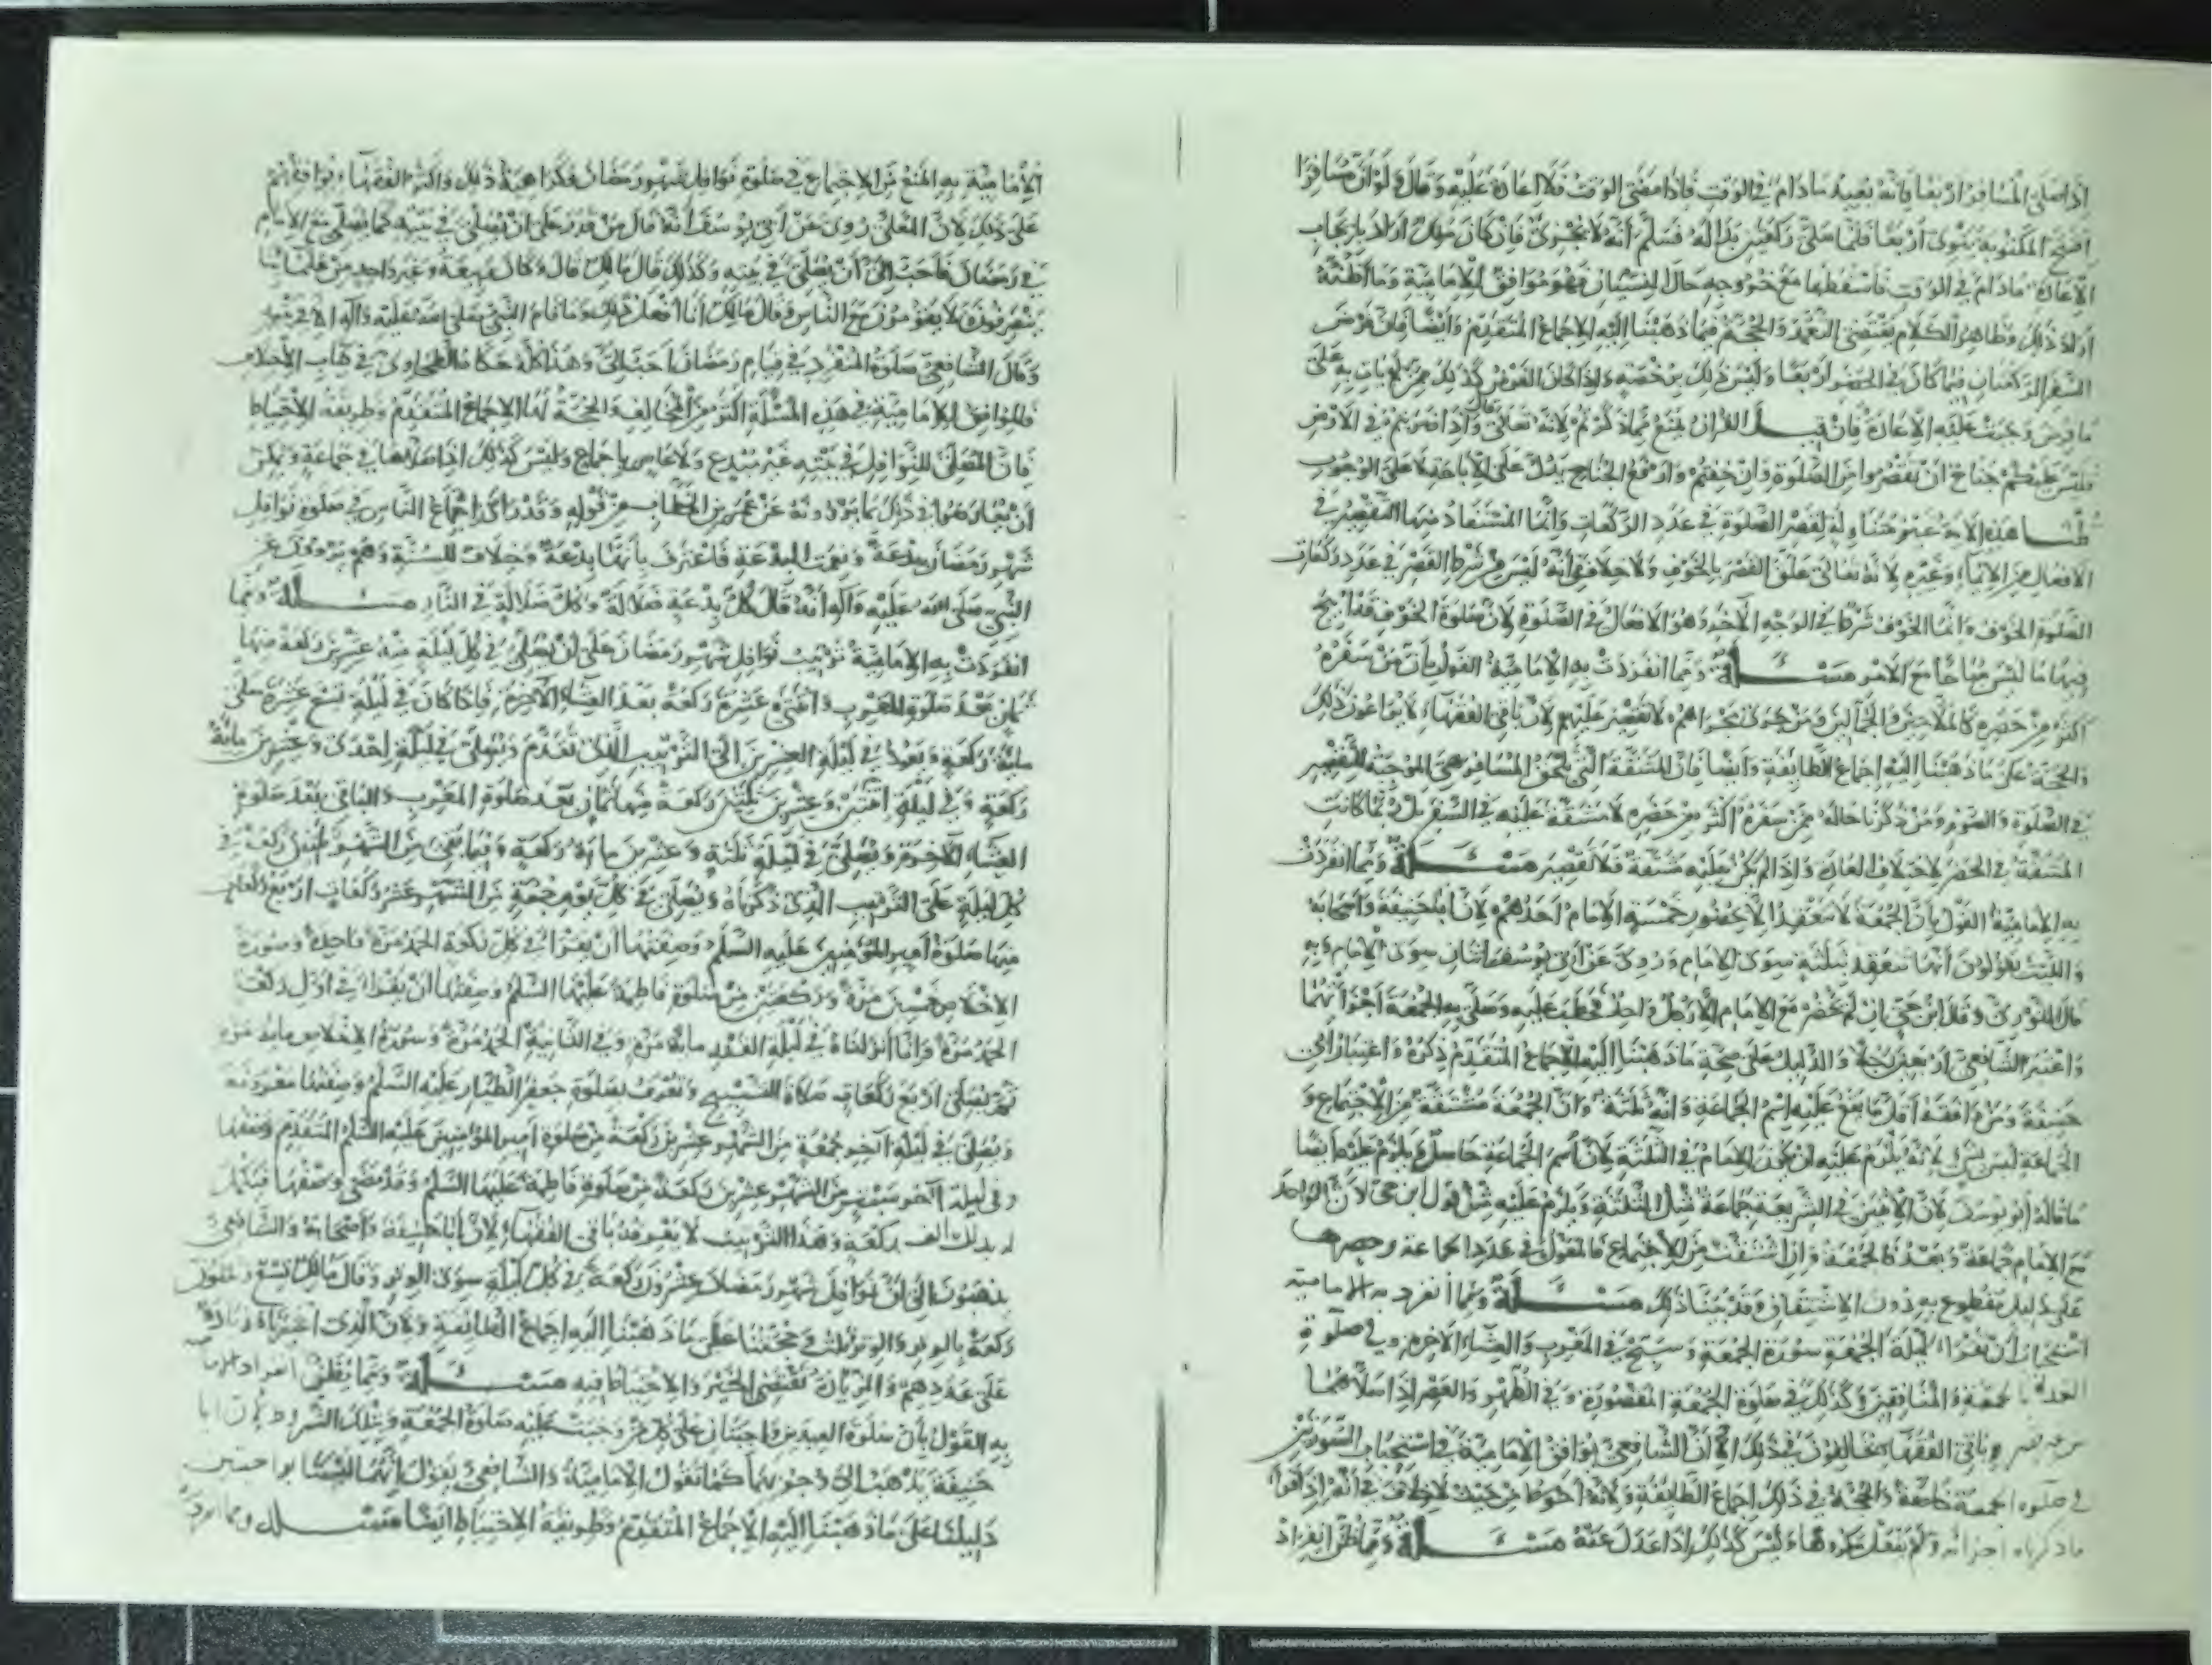 اذا صلى المسافر اربعا فانه يعيد ما دام في الوقت فاذا مضى الوقت فلا اعادة عليه وقال ولو ان مسافرا
افتتح المكتوبة ينوى اربعا فلما صلى ركعتين بدا له فسلم انه لا يجزئ فان كان مالك اراد بايجاب
الاعادة ما دام في الوقت فاسقطها مع خروجه حال النسيان فهو موافق للامامية وما اظنه
اراد ذلك وظاهر الكلام يقتضى التعمد والحجة فيما ذهبنا اليه الاجماع المتقدم وايضا فان فرض
السفر الركعتان فيما كان في الحضر اربعا وليس ذلك برخصة واذا كان الفرض كذلك فمن لم يات به على
ما فرض وجبت عليه الاعادة فان قيل القرآن يمنع مما ذكرتم لانه تعالى قال واذا ضربتم في الارض
فليس عليكم جناح ان تقصروا من الصلوة ان خفتم وارتفع الجناح يدل على الاباحة لا على الوجوب
قلنا هذه الاية غير متناولة لقصر الصلوة في عدد الركعات وانما المستفاد منها التقصير في
الافعال من الايماء وغيره لانه تعالى علق القصر بالخوف ولا خلاف في انه ليس من شرط القصر في عدد ركعات
الصلوة الخوف وانما الخوف شرط في الوجه الاخر وهو الافعال في الصلوة لان صلوة الخوف قد ابيح
فيها ما ليس مباحا مع الامن مسئلة ومما انفردت به الامامية القول بان من سفره
اكثر من حضره كالملاحين والجمالين ومن جرى مجراهم لا تقصير عليهم لان باقى الفقهاء لا يراعون ذلك
والحجة على ما ذهبنا اليه اجماع الطايفة وايضا فان المشقة التى تلحق المسافر هى الموجبة للتقصير
في الصلوة والصوم ومن ذكرنا حاله ممن سفره اكثر من حضره لا مشقة عليه في السفر بل ربما كانت
المشقة في الحضر لاختلاف العادة واذا لم يكن عليه مشقة فلا تقصير مسئلة ومما انفردت
به الامامية القول بان الجمعة لا تنعقد الا بحضور خمسة الامام احدهم لان ابا حنيفة واصحابه
والليث يقولون انها تنعقد بثلثة سوى الامام وروى عن ابى يوسف اثنان سوى الامام وبه
قال الثورى وقال ابن حى ان لم يحضر مع الامام الا رجل واحد فخطب عليه وصلى به الجمعة اجزأتهما
واعتبر الشافعى اربعين رجلا والدليل على صحة ما ذهبنا اليه الاجماع المتقدم ذكره واعتبار ابى
حنيفة ومن وافقه اقل ما يقع عليه اسم الجماعة وانه ثلثة وان الجمعة مشتقة من الاجتماع و
الجماعة ليس بشئ لانه يلزم عليه ان يكون الامام في الثلثة لان اسم الجماعة حاصل ويلزم عليه ايضا
ما قاله ابو يوسف لان الاثنين في الشريعة جماعة مثل الثلثة ويلزم عليه مثل قول ابن حى لان الواحد
مع الامام جماعة وبعد فالجمعة وان اشتقت من الاجتماع فالمعول في عدد الجماعة وحصرها
على دليل مقطوع به دون الاشتقاق وقد بينا ذلك مسئلة ومما انفرد به الامامية
استحباب ان يقرا ليلة الجمعة سورة الجمعة وسبح في المغرب والعشاء الاخرة وفي صلوة
الغداة بالجمعة والمنافقين وكذلك في صلوة الجمعة المقصورة وفي الظهر والعصر اذا صلاهما
من غير قصر وباقى الفقهاء يخالفون في ذلك الا ان الشافعى يوافق الامامية في استحباب السورتين
في صلوة الجمعة خاصة والحجة في ذلك اجماع الطايفة ولانه احوط من حيث لا خلاف في انه اذا قرا
ما ذكرناه اجزأه ولم يفعل مكروها وليس كذلك اذا عدل عنه مسئلة ومما ظن انفراد
الامامية به المنع من الاجتماع في صلوة نوافل شهر رمضان فكراهية ذلك واكثر الفقهاء يوافقهم
على ذلك لان المعلى روى عن ابى يوسف انه قال من قدر على ان يصلى في بيته كما يصلى مع الامام
في رمضان فاحب الى ان يصلى في بيته وكذلك قال مالك قال وكان ربيعة وغير واحد من علمائنا
ينصرفون ولا يقومون مع الناس وقال مالك انا افعل ذلك وما قام النبى صلى الله عليه وآله الا في بيته
وقال الشافعى صلوة المنفرد في قيام رمضان احب الى وهذا كله حكاه الطحاوى في كتاب الاختلاف
فالموافق للامامية في هذه المسئلة اكثر من المخالف والحجة لها الاجماع المتقدم وطريقة الاحتياط
فان المصلى للنوافل في بيته غير مبتدع ولا عاص باجماع وليس كذلك اذا صلاها في جماعة ويمكن
ان يعارضوا في ذلك بما يروونه عن عمر بن الخطاب من قوله وقد راى اجتماع الناس في صلوة نوافل
شهر رمضان بدعة ونعمت البدعة فاعترف بانها بدعة وخلاف للسنة وهم يروون عن
النبى صلى الله عليه وآله انه قال كل بدعة ضلالة وكل ضلالة في النار مسئلة ومما
انفردت به الامامية ترتيب نوافل شهر رمضان على ان يصلى في كل ليلة منه عشرين ركعة منها
ثمان بعد صلوة المغرب واثنتى عشرة ركعة بعد العشاء الاخرة فاذا كان في ليلة تسع عشرة صلى
مائة ركعة ويعود في ليلة العشرين الى الترتيب الذى تقدم ويصلى في ليلة احدى وعشرين مائة
ركعة وفي ليلة اثنتين وعشرين ثلثين ركعة منها ثمان بعد صلوة المغرب والباقى بعد صلوة
العشاء الاخرة ويصلى في ليلة ثلثة وعشرين مائة ركعة وفيما بقى من الشهر ثلثين ركعة في
كل ليلة على الترتيب الذى ذكرناه ويصلى في كل يوم جمعة من الشهر عشر ركعات اربع ركعات
منها صلوة امير المؤمنين عليه السلم وصفتها ان يقرا في كل ركعة الحمد مرة واحدة وسورة
الاخلاص خمسين مرة وركعتين من صلوة فاطمة عليها السلم وصفتها ان يقرا في اول ركعة
الحمد مرة وانا انزلناه في ليلة القدر مائة مرة وفي الثانية الحمد مرة وسورة الاخلاص مائة مرة
ثم يصلى اربع ركعات صلاة التسبيح وتعرف بصلوة جعفر الطيار عليه السلم وصفتها معروفة
ويصلى في ليلة آخر جمعة من الشهر عشرين ركعة من صلوة امير المؤمنين عليه السلم المتقدم وصفها
وفي ليلة آخر سبت من الشهر عشرين ركعة من صلوة فاطمة عليها السلم وقد مضى وصفها فيكمل
له بذلك الف ركعة وهذا الترتيب لا يعرفه باقى الفقهاء لان ابا حنيفة واصحابه والشافعى
يذهبون الى ان نوافل شهر رمضان عشرون ركعة في كل ليلة سوى الوتر وقال مالك تسع وثلثون
ركعة بالوتر والوتر ثلث وحجتنا على ما ذهبنا اليه اجماع الطايفة ولان الذى اعتبرناه زيادة
على عددهم والزيادة تقتضى الخير والاحتياط فيه مسئلة ومما يظن انفراد الامامية
به القول بان صلوة العيدين واجبتان على كل من وجبت عليه صلوة الجمعة وبتلك الشروط لان ابا
حنيفة يذهب الى وجوبهما كما تقول الامامية والشافعى يقول انهما ليستا بواجبتين
دليلنا على ما ذهبنا اليه الاجماع المتقدم وطريقة الاحتياط ايضا مسئلة ومما انفردت